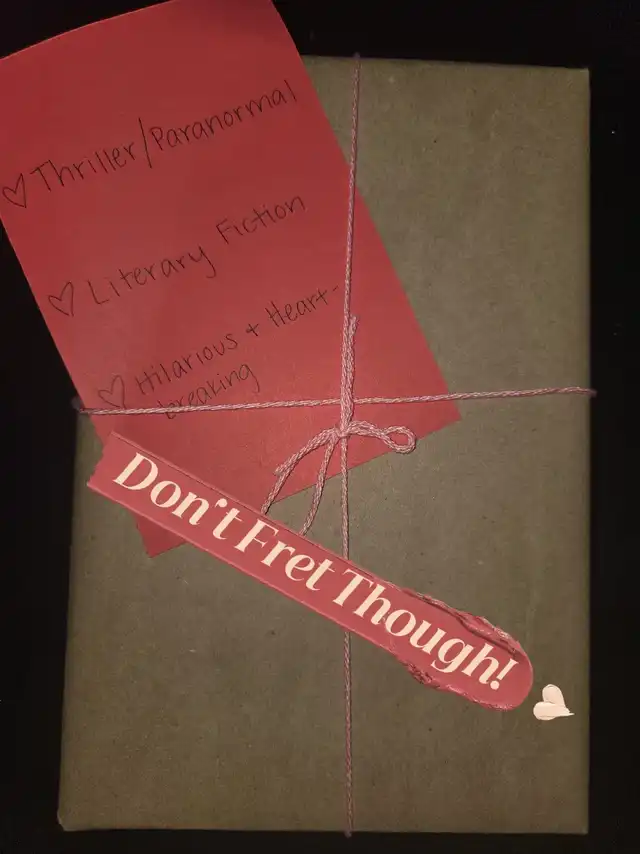 ♡ Thriller/Paranormal
♡ Literary Fiction
♡ Hilarious + Heart-
breaking
Don't Fret Though!